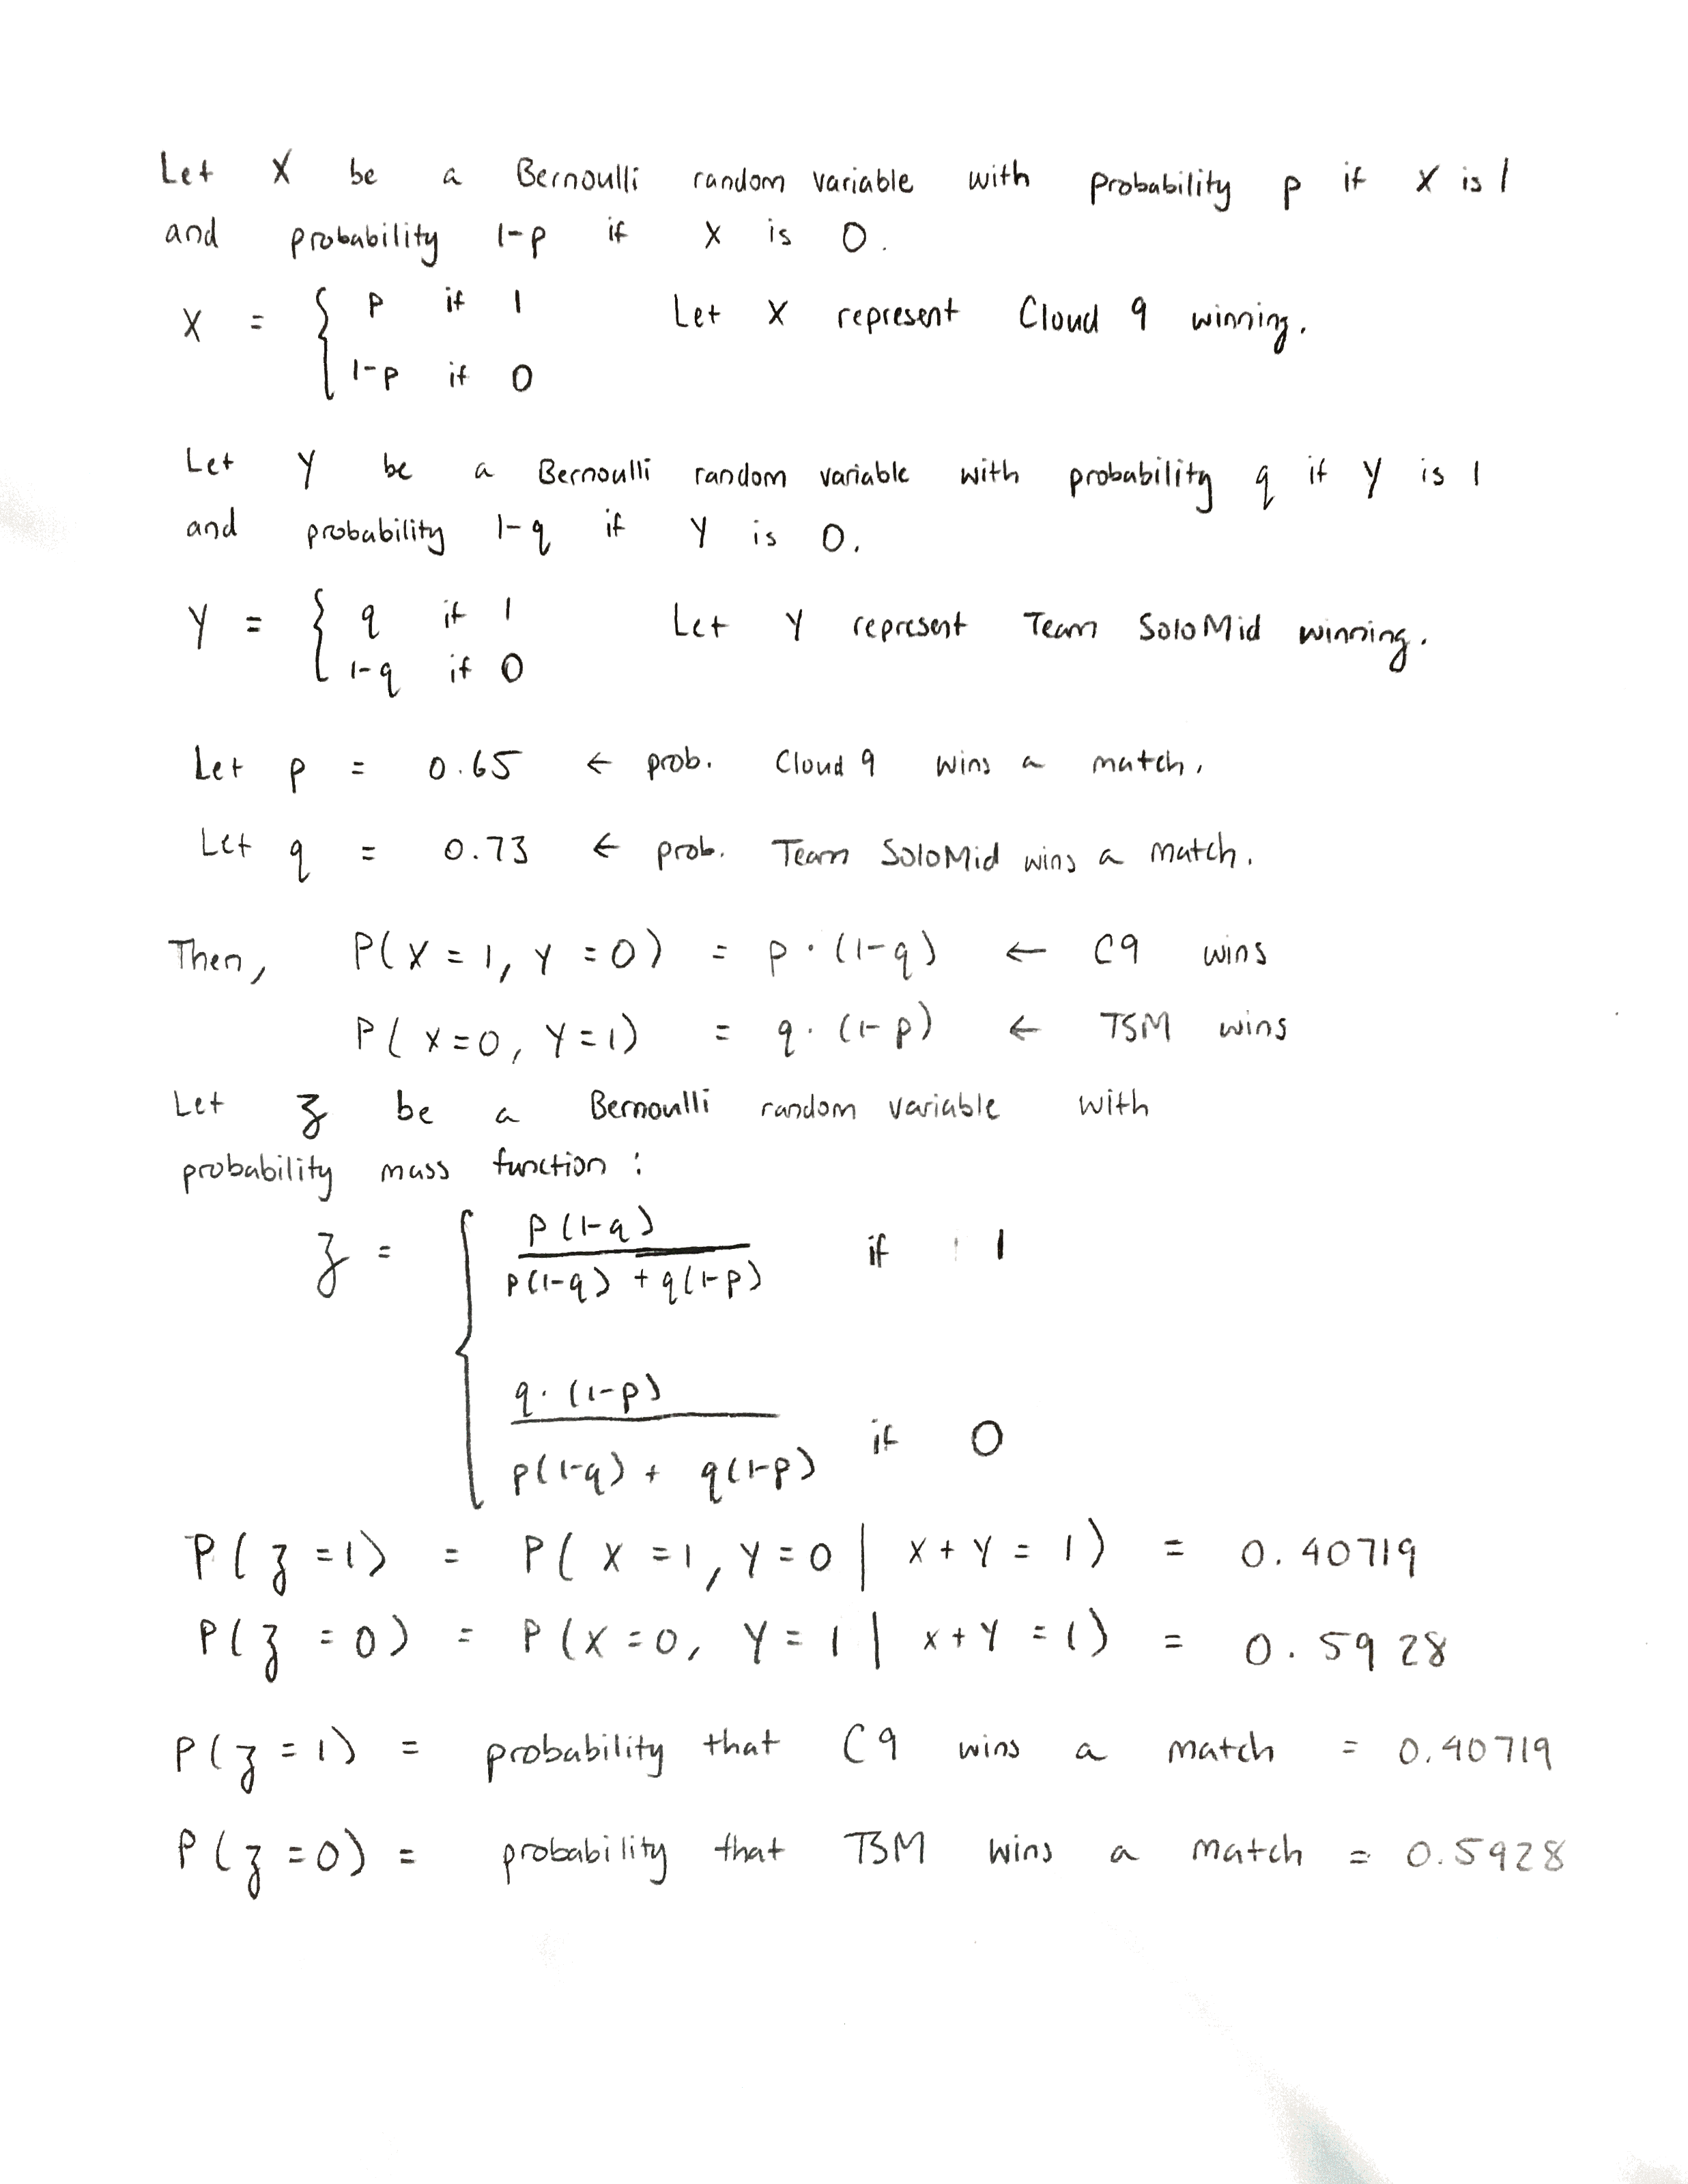 Let X be a Bernoulli random variable with probability p if X is 1
and probability 1-p if X is 0.
X = { p if 1 Let X represent Cloud 9 winning.
1-p if 0
Let Y be a Bernoulli random variable with probability q if Y is 1
and probability 1-q if Y is 0.
Y = { q if 1 Let Y represent Team SoloMid winning.
1-q if 0
Let p = 0.65 ← prob. Cloud 9 wins a match.
Let q = 0.73 ← prob. Team SoloMid wins a match.
Then, P(X = 1, Y = 0) = p · (1-q) ← C9 wins
P(X=0, Y=1) = q · (1-p) ← TSM wins
Let z be a Bernoulli random variable with
probability mass function :
z = { p(1-q) / p(1-q) + q(1-p) if 1
q · (1-p) / p(1-q) + q(1-p) if 0
P(z =1) = P( X =1, Y=0 | X+Y = 1) = 0.40719
P(z =0) = P(X=0, Y=1 | X+Y =1) = 0.5928
P(z =1) = probability that C9 wins a match = 0.40719
P(z =0) = probability that TSM wins a match = 0.5928